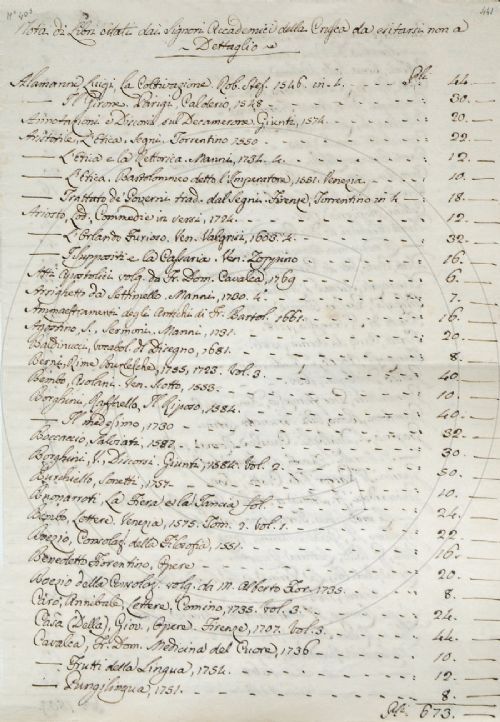 N° 40s
441
Nota di Libri citati dai Signori Accademici della Crusca da esitarsi non a
Dettaglio
Alamanni, Luigi, la Coltivazione, Rob. Stef. 1546. in 4. 44.
— Il Girone, Parigi, Calderio, 1548 30.
Annotazioni e Discorsi sul Decamerone, Giunti, 1574. 20.
Aristotile, L'Etica, Segni, Torrentino 1550 22.
— L'Etica e la Rettorica, Manni, 1734. 4. 12.
— L'Etica, Bartolommeo detto l'Imperatore, 1551. Venezia 10.
— Trattato de' Governi trad. dal Segni, Firenze, Torrentino in 4 18.
Ariosto, Lod. Commedie in versi, 1724. 12.
— L'Orlando Furioso, Ven. Valgrisi, 1603. 4. 32.
— I Suppositi e la Cassaria. Ven. Zoppino 16.
Atti Apostolici volg. da Fr. Dom. Cavalca, 1769 6.
Arrighetto da Settimello, Manni, 1730. 4. 7.
Ammaestramenti degli Antichi di Fr. Bartol. 1661. 16.
Agostino, S. Sermoni, Manni, 1731. 20.
Baldinucci, Vocabol. di Disegno, 1681. 8.
Berni, Rime Burlesche, 1755, 1723. Vol. 3. 40.
Bembo, Asolani. Ven. Scotto, 1553. 10.
Borghini, Raffaello, Il Riposo, 1584. 40.
— Il medesimo, 1730 32.
Boccaccio, Salviati, 1587. 30.
Borghini, V., Discorsi, Giunti, 1584. Vol. 2. 50.
Burchiello, Sonetti, 1757. 10.
Buonarroti, La Fiera e la Tancia fol. 24.
Bembo, Lettere, Venezia, 1575. Tom. 2. Vol. 1. 22.
Boezio, Consolaz. della Filosofia, 1551. 16.
Benedetto Fiorentino, Opere 20.
Boezio della Consolaz. volg. da M. Alberto Fior. 1735. 8.
Caro, Annibale, Lettere, Comino, 1735. Vol. 3. 24.
Casa (Della), Giov., Opere. Firenze, 1707. Vol. 3. 44.
Cavalca, Fr. Dom. Medicina del Cuore, 1736 10.
— Frutti della Lingua, 1754. 12.
— Pungilingua, 1751. 8.
673.